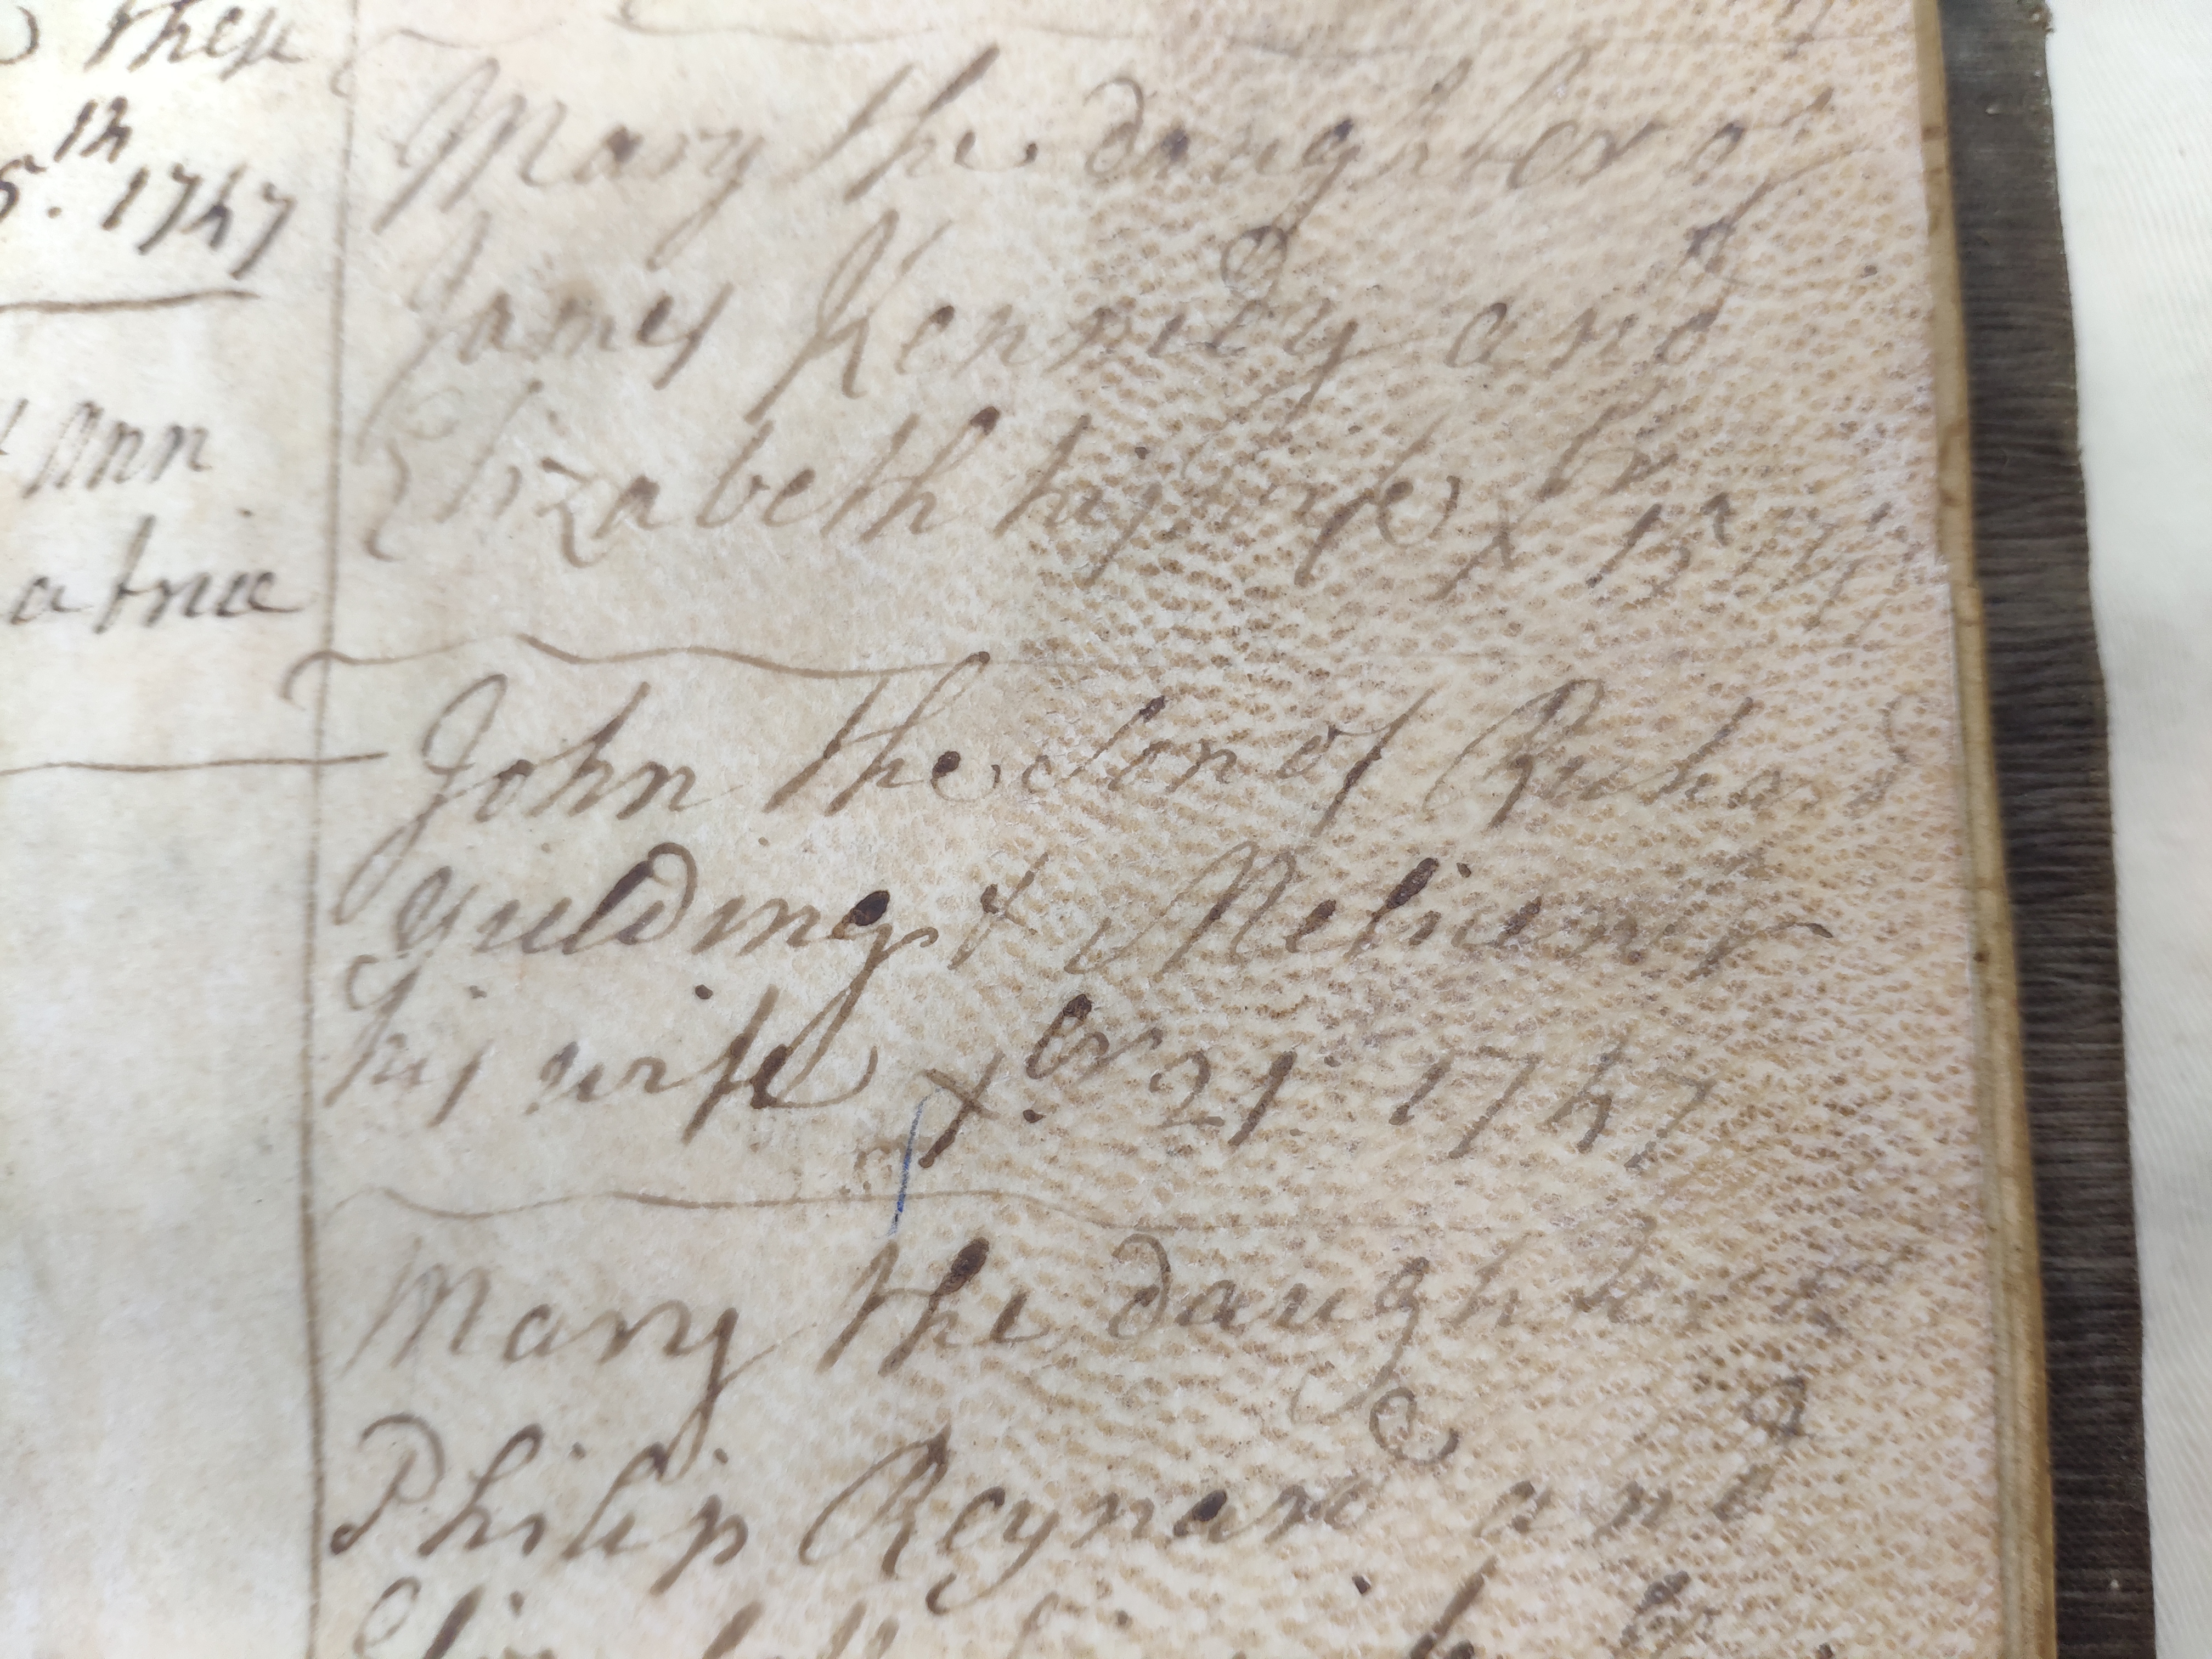 then
5.th 1747
Ann
Mary the daughter of
James Kennedy and
Elizabeth his wife Xbr 15
John the Son of Richard
Guilding & Melicent
his wife X.br 21. 1747
Mary the daughter of
Philip Reynard and